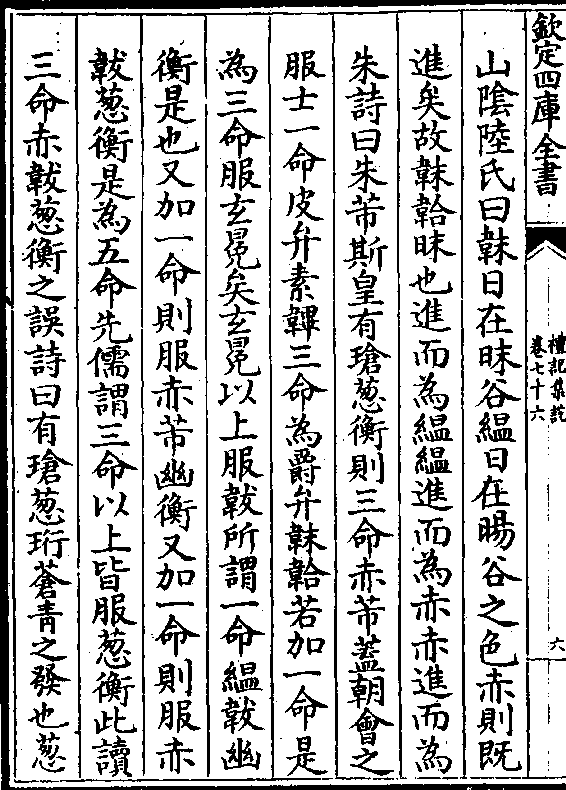 欽定四庫全書
禮記集說
卷七十六
六
山隂陸氏曰韎日在昧谷緼日在暘谷之色赤則既
進矣故韎韐昧也進而為緼緼進而為赤赤進而為
朱詩曰朱芾斯皇有瑲葱衡則三命赤芾蓋朝會之
服士一命皮弁素韠三命為爵弁韎韐若加一命是
為三命服玄冕矣玄冕以上服韍所謂一命緼韍幽
衡是也又加一命則服赤芾幽衡又加一命則服赤
韍葱衡是為五命先儒謂三命以上皆服葱衡此讀
三命赤韍葱衡之誤詩曰有瑲葱珩蒼青之發也葱